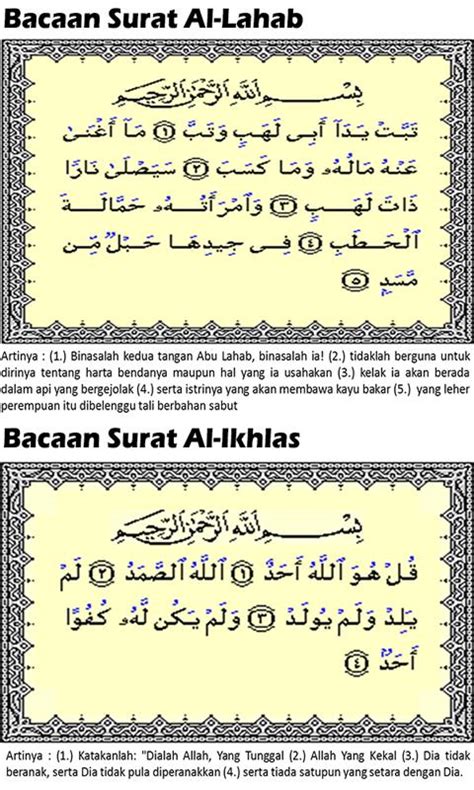 Bacaan Surat Al-Lahab
بِسْمِ اللَّهِ الرَّحْمَٰنِ الرَّحِيمِ
تَبَّتْ يَدَآ أَبِى لَهَبٍ وَتَبَّ ۝١ مَآ أَغْنَىٰ
عَنْهُ مَالُهُۥ وَمَا كَسَبَ ۝٢ سَيَصْلَىٰ نَارًا
ذَاتَ لَهَبٍ ۝٣ وَٱمْرَأَتُهُۥ حَمَّالَةَ
ٱلْحَطَبِ ۝٤ فِى جِيدِهَا حَبْلٌ مِّن
مَّسَدٍۭ ۝٥
Artinya : (1.) Binasalah kedua tangan Abu Lahab, binasalah ia! (2.) tidaklah berguna untuk
dirinya tentang harta bendanya maupun hal yang ia usahakan (3.) kelak ia akan berada
dalam api yang bergejolak (4.) serta istrinya yang akan membawa kayu bakar (5.) yang leher
perempuan itu dibelenggu tali berbahan sabut
Bacaan Surat Al-Ikhlas
بِسْمِ اللَّهِ الرَّحْمَٰنِ الرَّحِيمِ
قُلْ هُوَ ٱللَّهُ أَحَدٌ ۝١ ٱللَّهُ ٱلصَّمَدُ ۝٢ لَمْ
يَلِدْ وَلَمْ يُولَدْ ۝٣ وَلَمْ يَكُن لَّهُۥ كُفُوًا
أَحَدٌۢ ۝٤
Artinya : (1.) Katakanlah: "Dialah Allah, Yang Tunggal (2.) Allah Yang Kekal (3.) Dia tidak
beranak, serta Dia tidak pula diperanakkan (4.) serta tiada satupun yang setara dengan Dia.